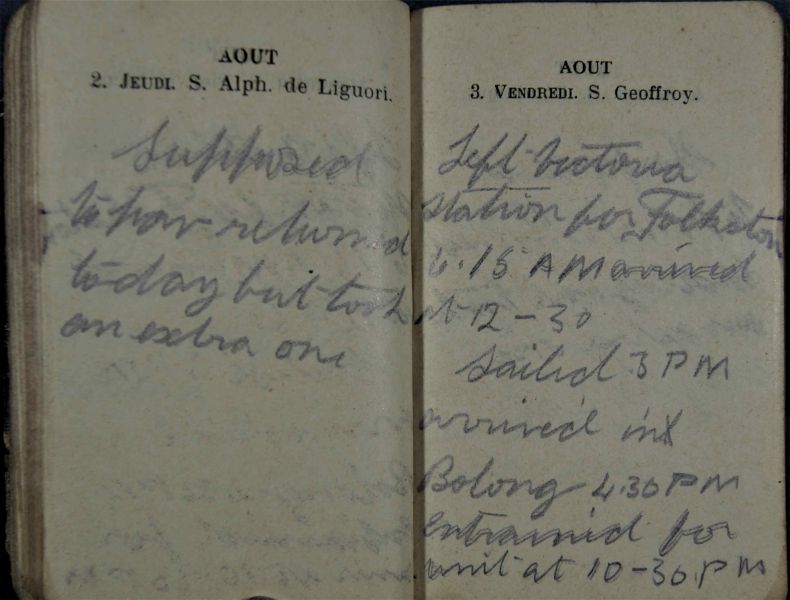 AOUT
2. JEUDI. S. Alph. de Liguori.
Supposed
to hav returned
today but took
an extra one
AOUT
3. VENDREDI. S. Geoffroy.
Left Victoria
station for Folkston
6.15 AM arrived
at 12-30
Sailed 3 PM
arrived in
Bolong 4.30 PM
Entrained for
unit at 10-30. PM